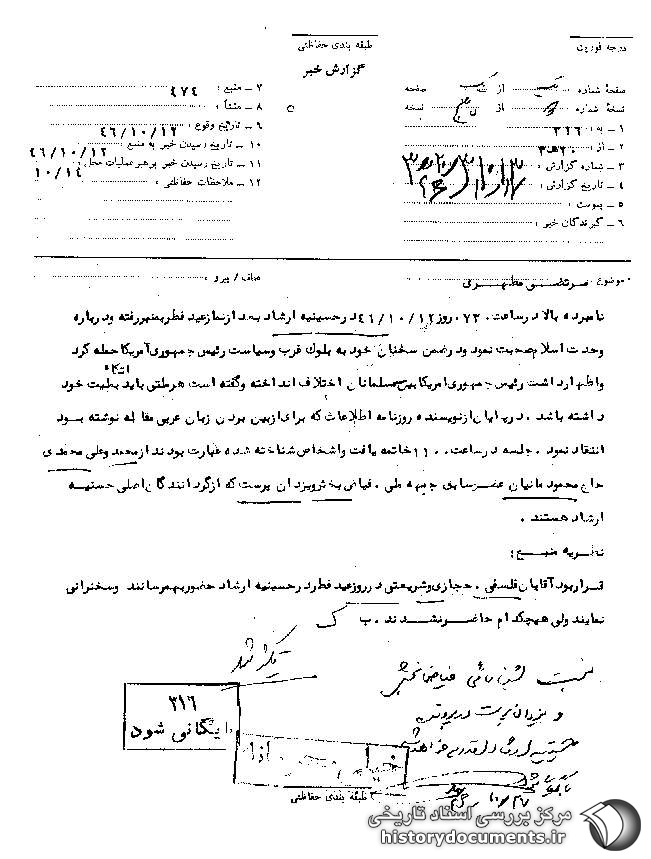 درجه فوریت
طبقه بندی حفاظتی
گزارش خبر
صفحهٔ شماره یک از یک صفحه
نسخهٔ شماره از نسخه
۱ ـ به : ۳۱۶
۲ ـ از : ۲۰ ه ۳
۳ ـ شماره گزارش :
۴ ـ تاریخ گزارش :
۵ ـ پیوست :
۶ ـ گیرندگان خبر :
۷ ـ منبع : ۴۷۴
۸ ـ منشأ :
۹ ـ تاریخ وقوع : ۴۶/۱۰/۱۲
۱۰ ـ تاریخ رسیدن خبر به منبع : ۴۶/۱۰/۱۲
۱۱ ـ تاریخ رسیدن خبر برهبر عملیات محل : ۱۰/۱۴
۱۲ ـ ملاحظات حفاظتی :
موضوع : مرتضی مطهری
عطف / پیرو :
نامبرده بالا در ساعت ۰۷۳۰ روز ۴۶/۱۰/۱۲ در حسینیه ارشاد بعد از نماز عید فطر بمنبر رفته و درباره
وحدت اسلام صحبت نمود و در ضمن سخنان خود به بلوک غرب و سیاست رئیس جمهوری آمریکا حمله کرد
و اظهار داشت رئیس جمهوری آمریکا بین مسلمانان اختلاف انداخته و گفته است هر ملتی باید بملیت خود اتکاء
داشته باشد . در پایان از نویسنده روزنامه اطلاعات که برای از بین بردن زبان عربی مقاله نوشته بود
انتقاد نمود . جلسه در ساعت ۱۱۰۰ خاتمه یافت و اشخاص شناخته شده عبارت بودند از محمد و علی محمدی
حاج محمود مانیان عضو سابق جبهه ملی ، فیاض بخش و یزدان پرست که از گردانندگان اصلی حسنیه
ارشاد هستند .
نظریه منبع :
قرار بود آقایان فلسفی . حجازی و شریعتی در روز عید فطر در حسینیه ارشاد حضور بهمرسانند و سخنرانی
نمایند ولی هیچکدام حاضر نشدند . ب ک
تکثیر شد
فیاض بخش
و یزدان پرست در پرونده
۳۱۶
بایگانی شود
۱۰/۲۷
طبقه بندی حفاظتی
مرکز بررسی اسناد تاریخی
historydocuments.ir